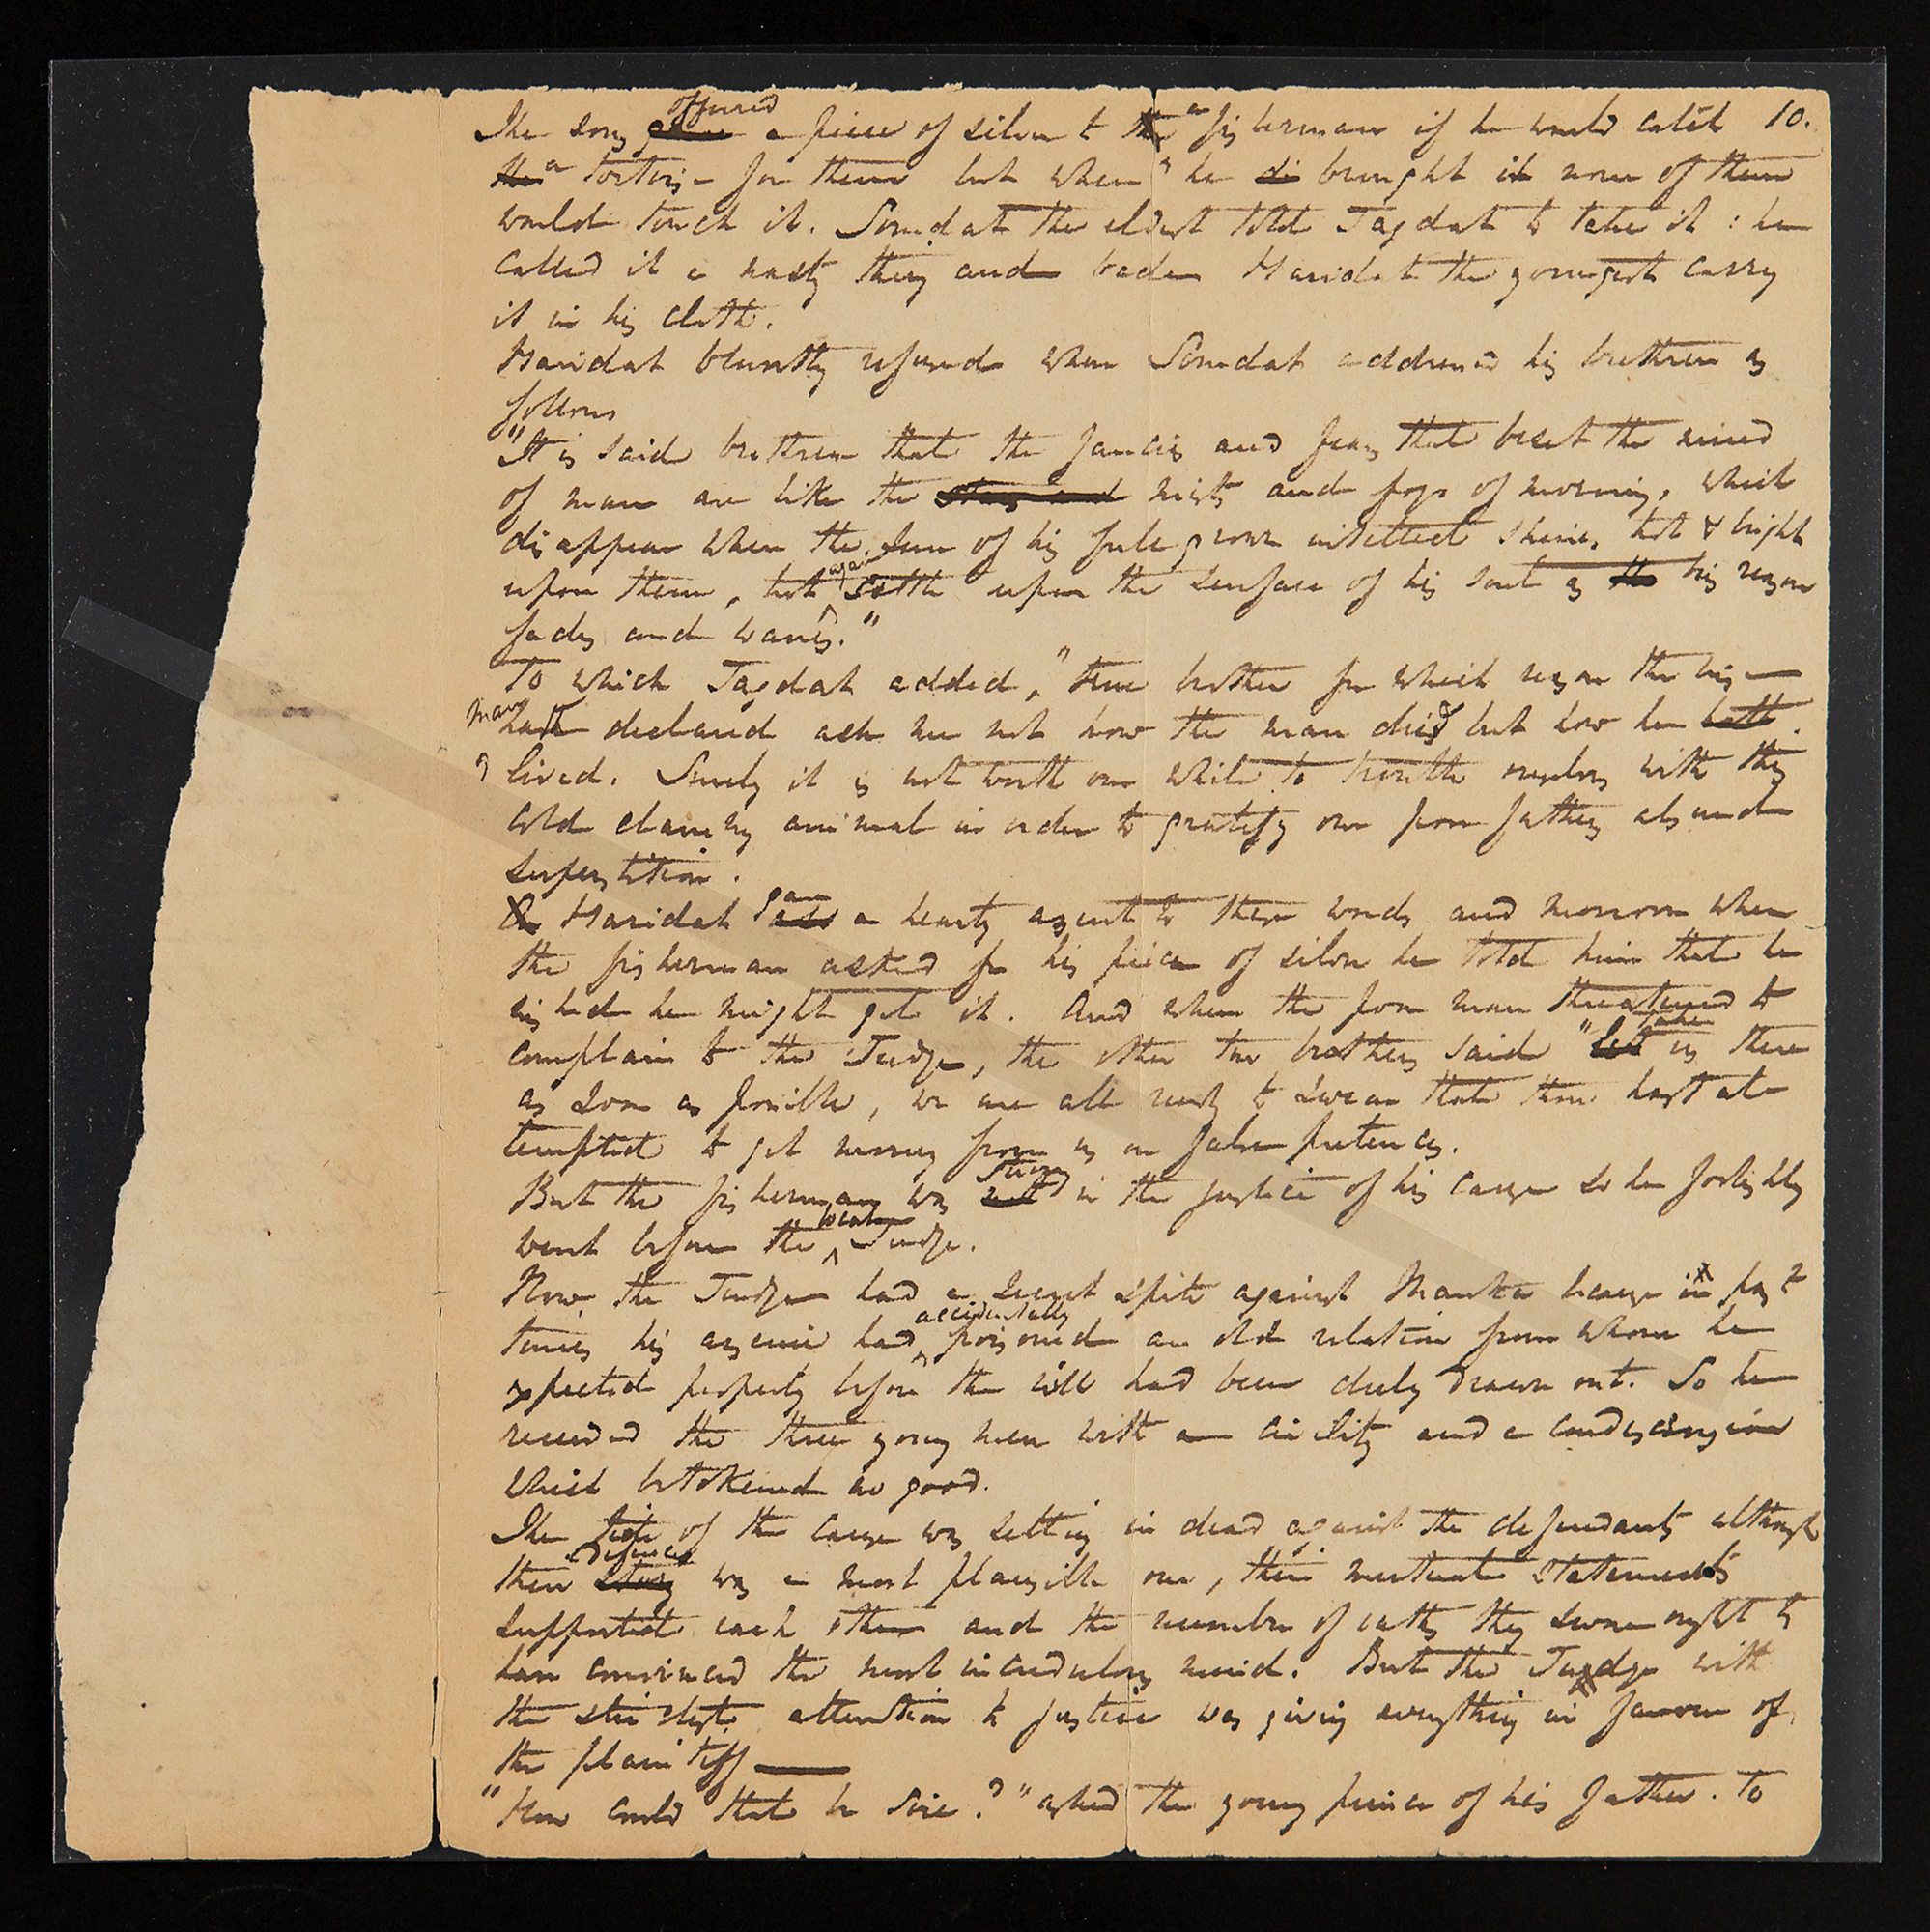 The sons gave offered a piece of silver to the a fisherman if he would catch 10.
the a tortoise for them but when he di brought it none of them
would touch it. Somdat the eldest told Jagdat to take it : he
called it a nasty thing and bade Haridat the youngest carry
it in his cloth.
Haridat bluntly refused when Somdat addressed his brethren as
follows
"It is said brethren that the fancies and fears that beset the mind
of man are like the mists and fogs of morning, which
disappear when the sun of his full grown intellect shines hot & bright
upon them, but again settle upon the surface of his soul as the his reason
fades and wanes."
To which Jagdat added, "true brother for which reason the wise
man hath declared ask me not how the man died but how he hath
lived. Surely it is not worth our while to trouble ourselves with this
cold clammy animal in order to gratify our poor fathers absurd
superstition.
Haridat gave a hearty assent to these words and moreover when
the fisherman asked for his piece of silver he told him that he
wished he might get it. And when the poor man threatened to
complain to the Judge, the other two brothers said "Let take us there
as soon as possible, we are all ready to swear that thou hast at-
tempted to get money from us on false pretences.
But the fisherman was strong in the justice of his cause so he forthwith
went before the Judge.
Now the Judge had a secret spite against because in past
times his had accidentally poisoned an old relation from whom he
expected property before the will had been duly drawn out. So he
received the three young men with a civility and a condescension
which betokened no good.
The tide of the cause was setting in dead against the defendants although
their story defence was a most plausible one, their mutual statements
supported each other and the number of oaths they swore ought to
have convinced the most incredulous mind. But the Judge with
the strictest attention to justice was giving everything in favour of
the plaintiff ——
"How could that be Sire?" asked the young prince of his father. To